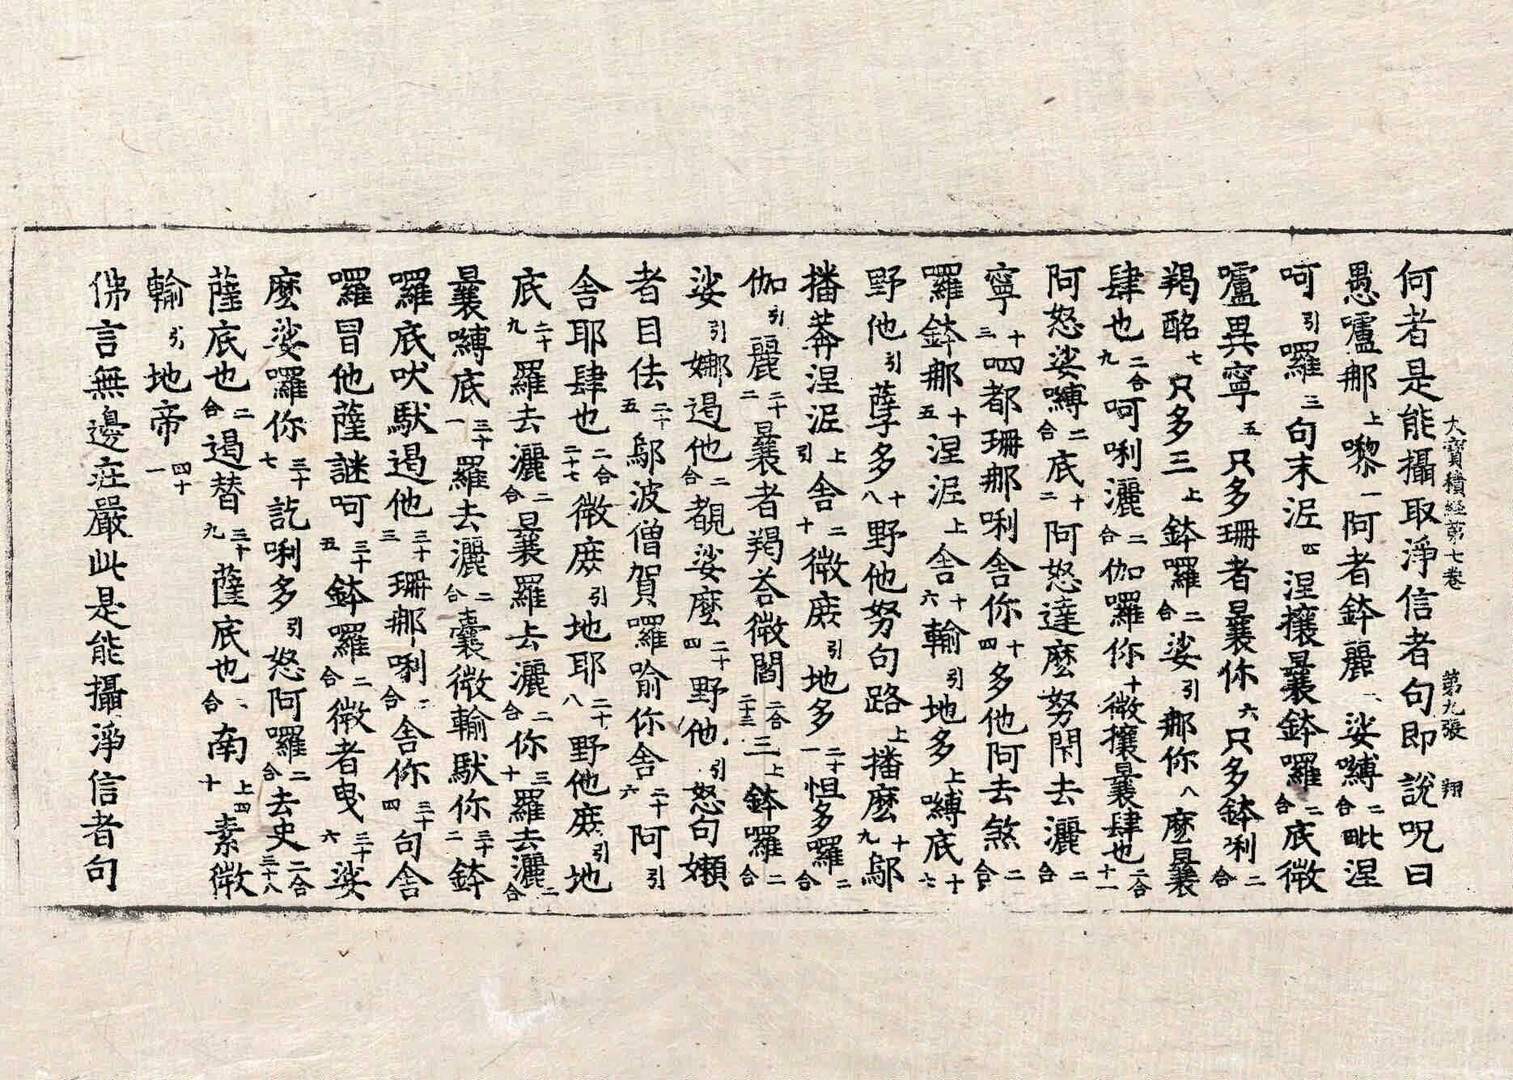 何者是能攝取淨信者句即說呪曰
大寶積經第七卷　第九張　翔
愚嚧那上嚟一阿者鉢麗二娑嚩二合毗涅
呵引囉三句末泥四涅攘曩鉢囉二合底微
嚧異寧五只多珊者曩你六只多鉢唎二合
羯酩七只多三上鉢囉二合娑引那你八麼曩
肆也二合九呵唎灑二合伽囉你十微攘曩肆也二合十一
阿怒娑嚩二合底十二阿怒達麼努閑去灑二合
寧十三呬都珊那唎舍你十四多他阿去煞二合
羅鉢那十五涅泥上舍十六輸引地多上嚩底十六
野他引孽多十八野他努句路上播麼十九鄔
播莽涅泥引上舍二十微庾引地多二十一怛多羅二合
伽引麗二十二曩者羯荅微閻二合二十三三上鉢囉二合
娑引娜遏他二合覩娑麼二十四野他引怒句嬾
者目佉二十五鄔波僧賀囉喻你舍二十六阿引
舍耶肆也二合二十七微庾引地耶二十八野他庾引地
底二十九羅去灑二合曩羅去灑二合你三十羅去灑二合
曩嚩底三十一羅去灑二合曩微輸馱你三十二鉢
羅底吠馱遏他三十三珊那唎二合舍你三十四句舍
囉冒他薩謎呵三十五鉢囉二合微者曳三十六娑
麼娑囉你三十七訖唎多引怒阿囉二合去史二合三十八
薩底也二合遏替三十九薩底也二合南上四十素微
輸引地帝四十一
佛言無邊莊嚴此是能攝淨信者句